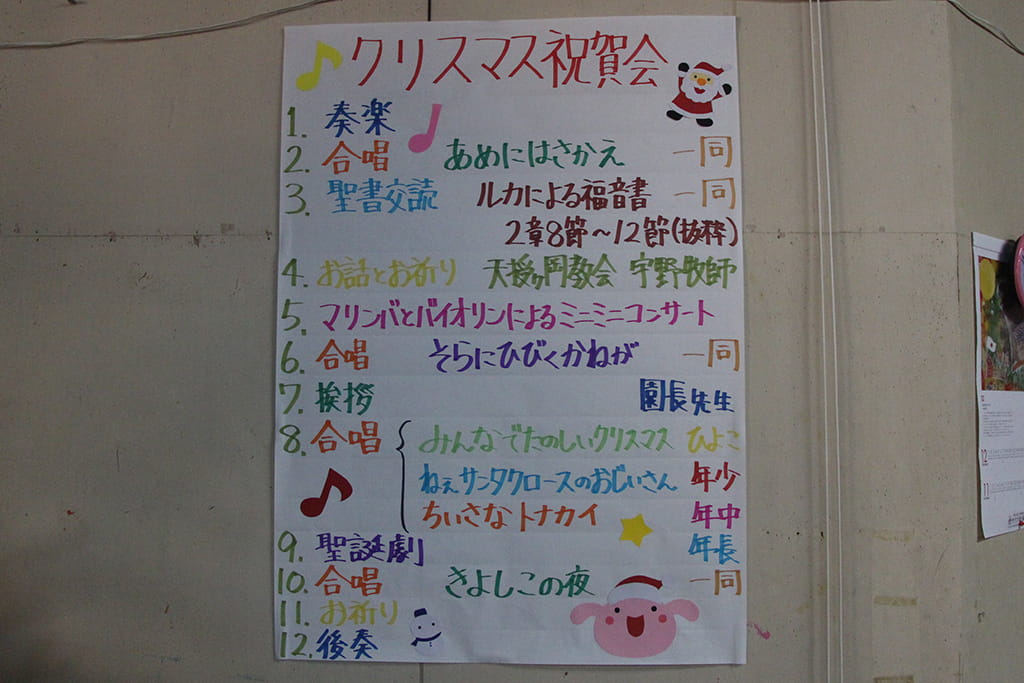 クリスマス祝賀会
1. 奏楽
2. 合唱 あめにはさかえ 一同
3. 聖書交読 ルカによる福音書 一同
2章8節〜12節(抜粋)
4. お話とお祈り 天授ヶ岡教会 宇野牧師
5. マリンバとバイオリンによるミニミニコンサート
6. 合唱 そらにひびくかねが 一同
7. 挨拶 園長先生
8. 合唱 みんなでたのしいクリスマス ひよこ
ねぇサンタクロースのおじいさん 年少
ちいさなトナカイ 年中
9. 聖誕劇 年長
10. 合唱 きよしこの夜 一同
11. お祈り
12. 後奏
12
11